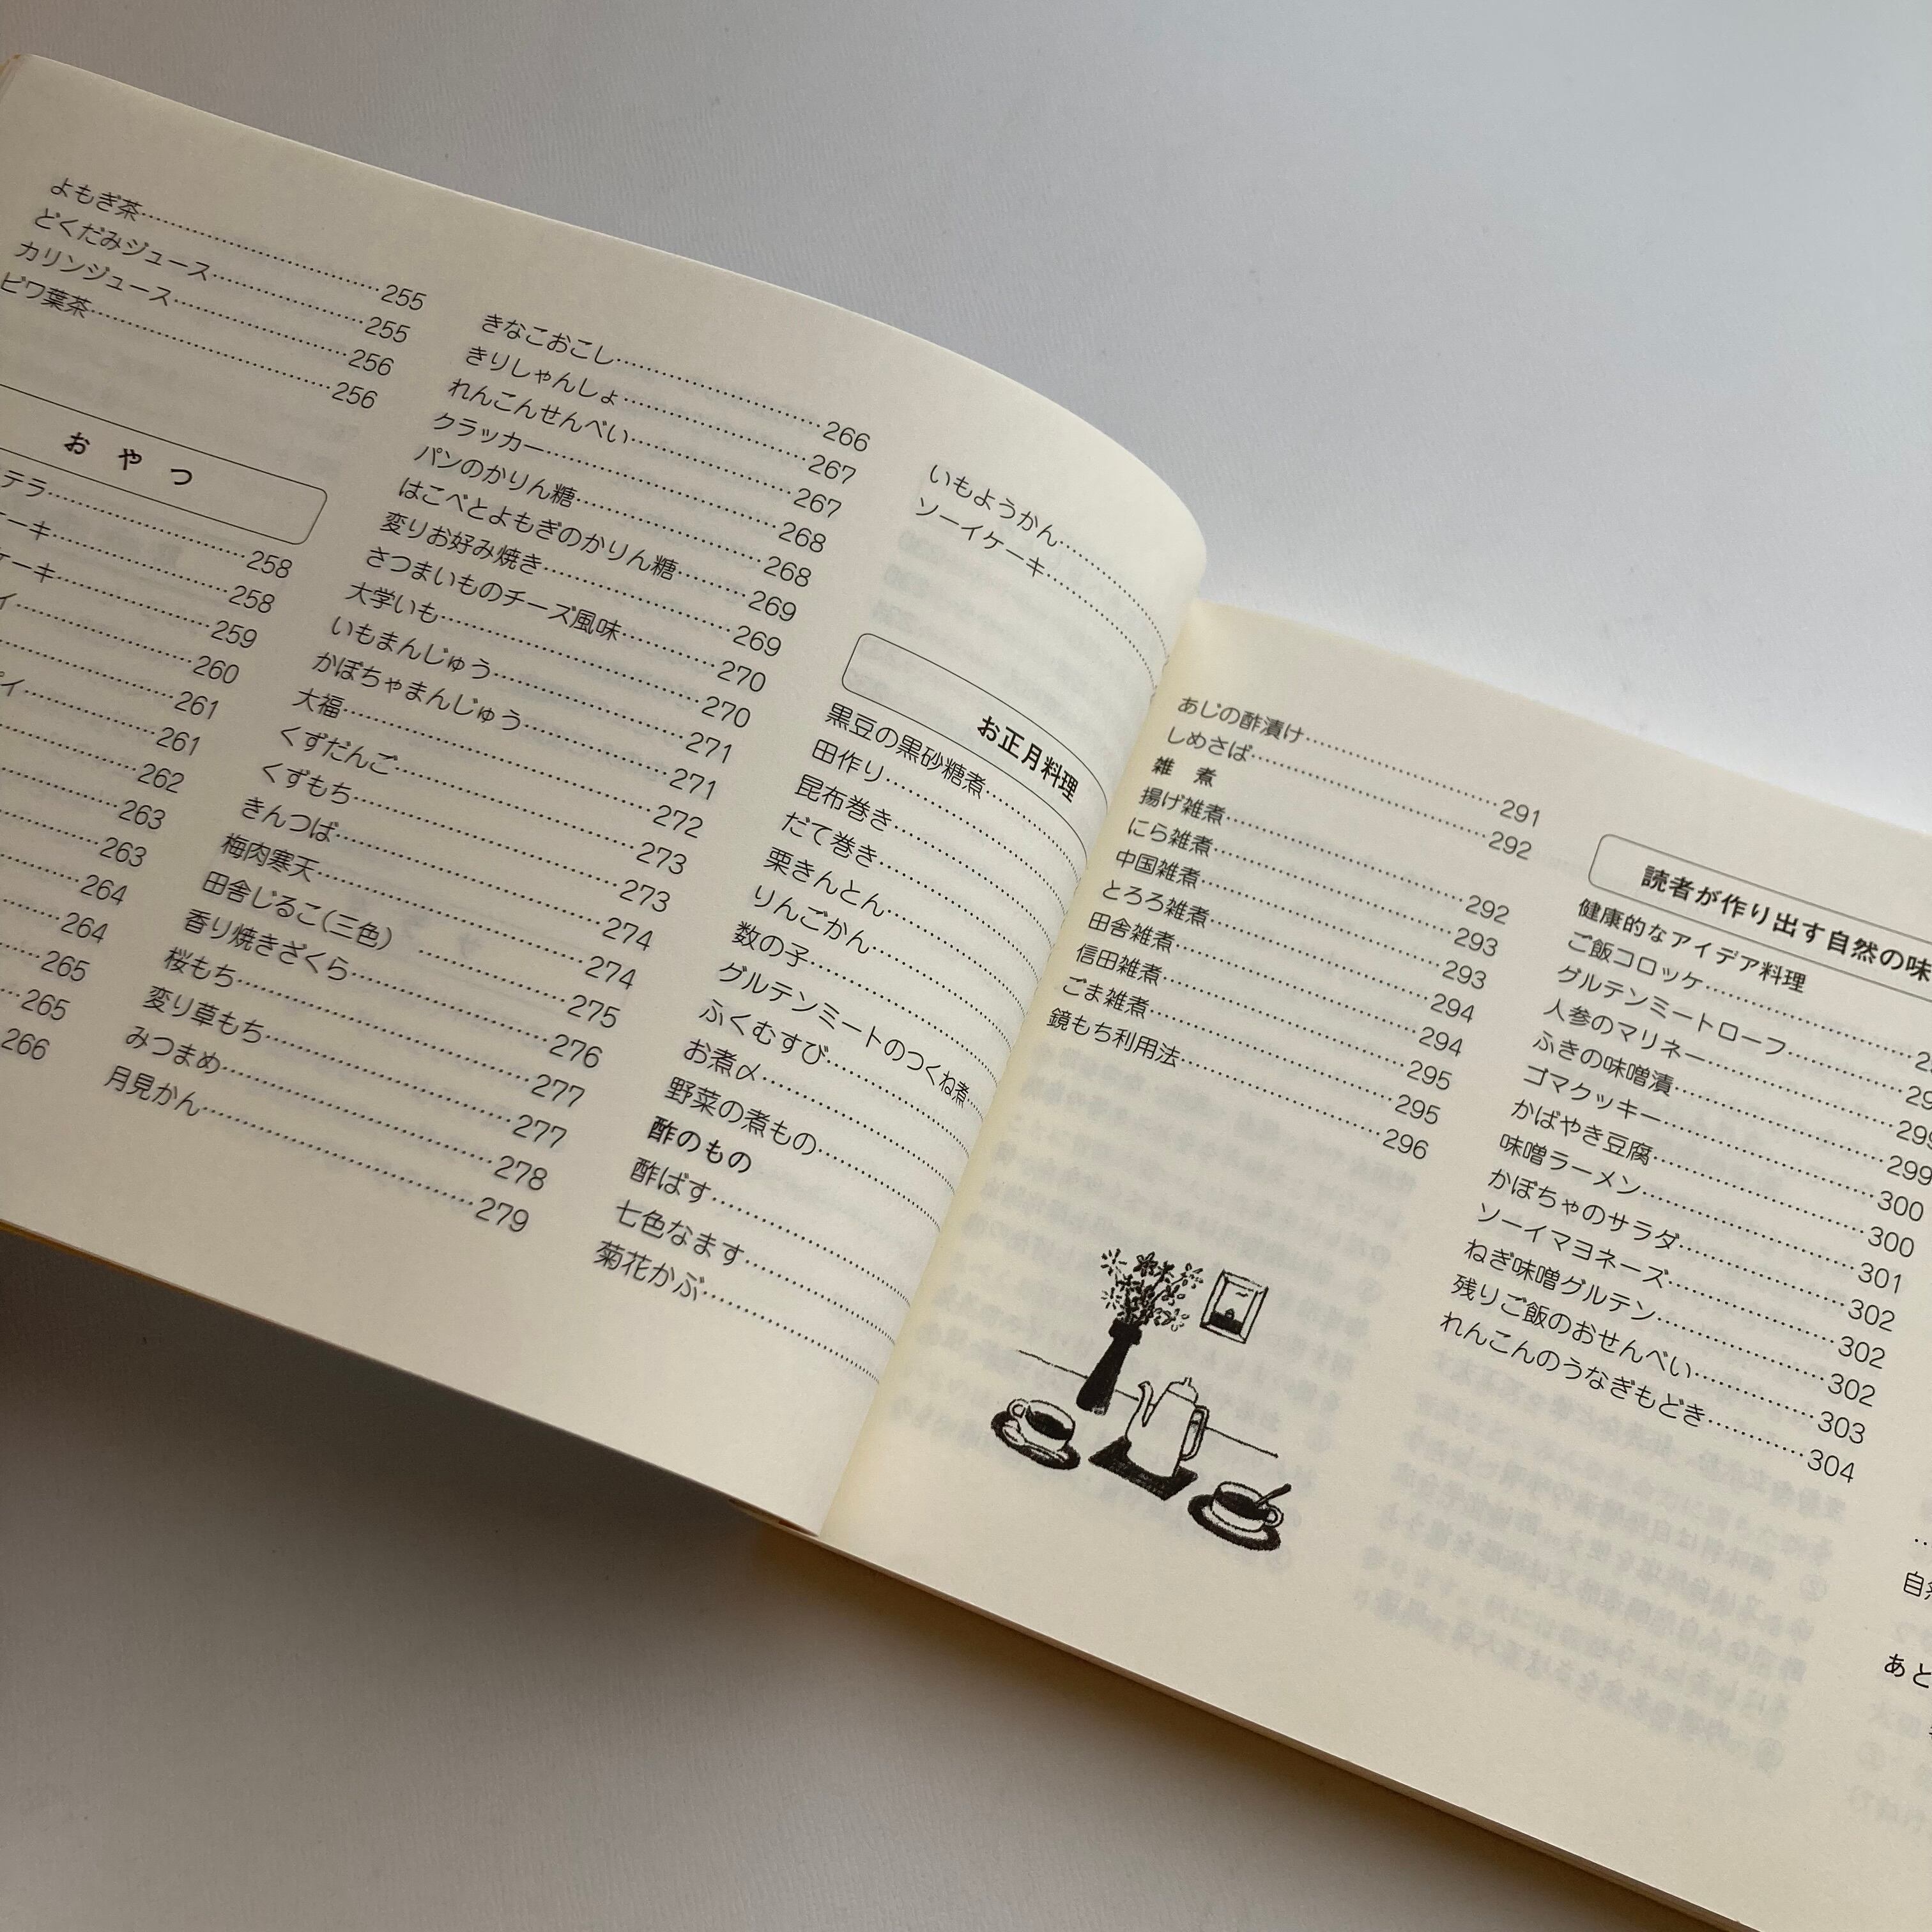 よもぎ茶……255
どくだみジュース……255
カリンジュース……256
ビワ葉茶……256
おやつ
テラ……258
ーキ……258
ケーキ……259
イ……260
……261
パイ……261
……262
……263
……263
……264
……264
……265
……265
266
きなこおこし……266
きりしゃんしょ……267
れんこんせんべい……267
クラッカー……268
パンのかりん糖……268
はこべとよもぎのかりん糖……269
変りお好み焼き……269
さつまいものチーズ風味……270
大学いも……270
いもまんじゅう……271
かぼちゃまんじゅう……271
大福……272
くずだんご……273
くずもち……273
きんつば……274
梅肉寒天……274
田舎じるこ(三色)……275
香り焼きざくら……276
桜もち……277
変り草もち……277
みつまめ……278
月見かん……279
いもようかん……
ソーイケーキ……
お正月料理
黒豆の黒砂糖煮……
田作り……
昆布巻き……
だて巻き……
栗きんとん……
りんごかん……
数の子……
グルテンミートのつくね煮……
ふくむすび……
お煮〆……
野菜の煮もの……
酢のもの
酢ばす……
七色なます……
菊花かぶ……
あじの酢漬け……291
しめさば……292
雑 煮
揚げ雑煮……292
にら雑煮……293
中国雑煮……293
とろろ雑煮……294
田舎雑煮……294
信田雑煮……295
ごま雑煮……295
鏡もち利用法……296
読者が作り出す自然の味
健康的なアイデア料理
ご飯コロッケ……
グルテンミートローフ……
人参のマリネー……299
ふきの味噌漬……299
ゴマクッキー……300
かばやき豆腐……300
味噌ラーメン……301
かぼちゃのサラダ……302
ソーイマヨネーズ……302
ねぎ味噌グルテン……302
残りご飯のおせんべい……303
れんこんのうなぎもどき……304
自然
あと